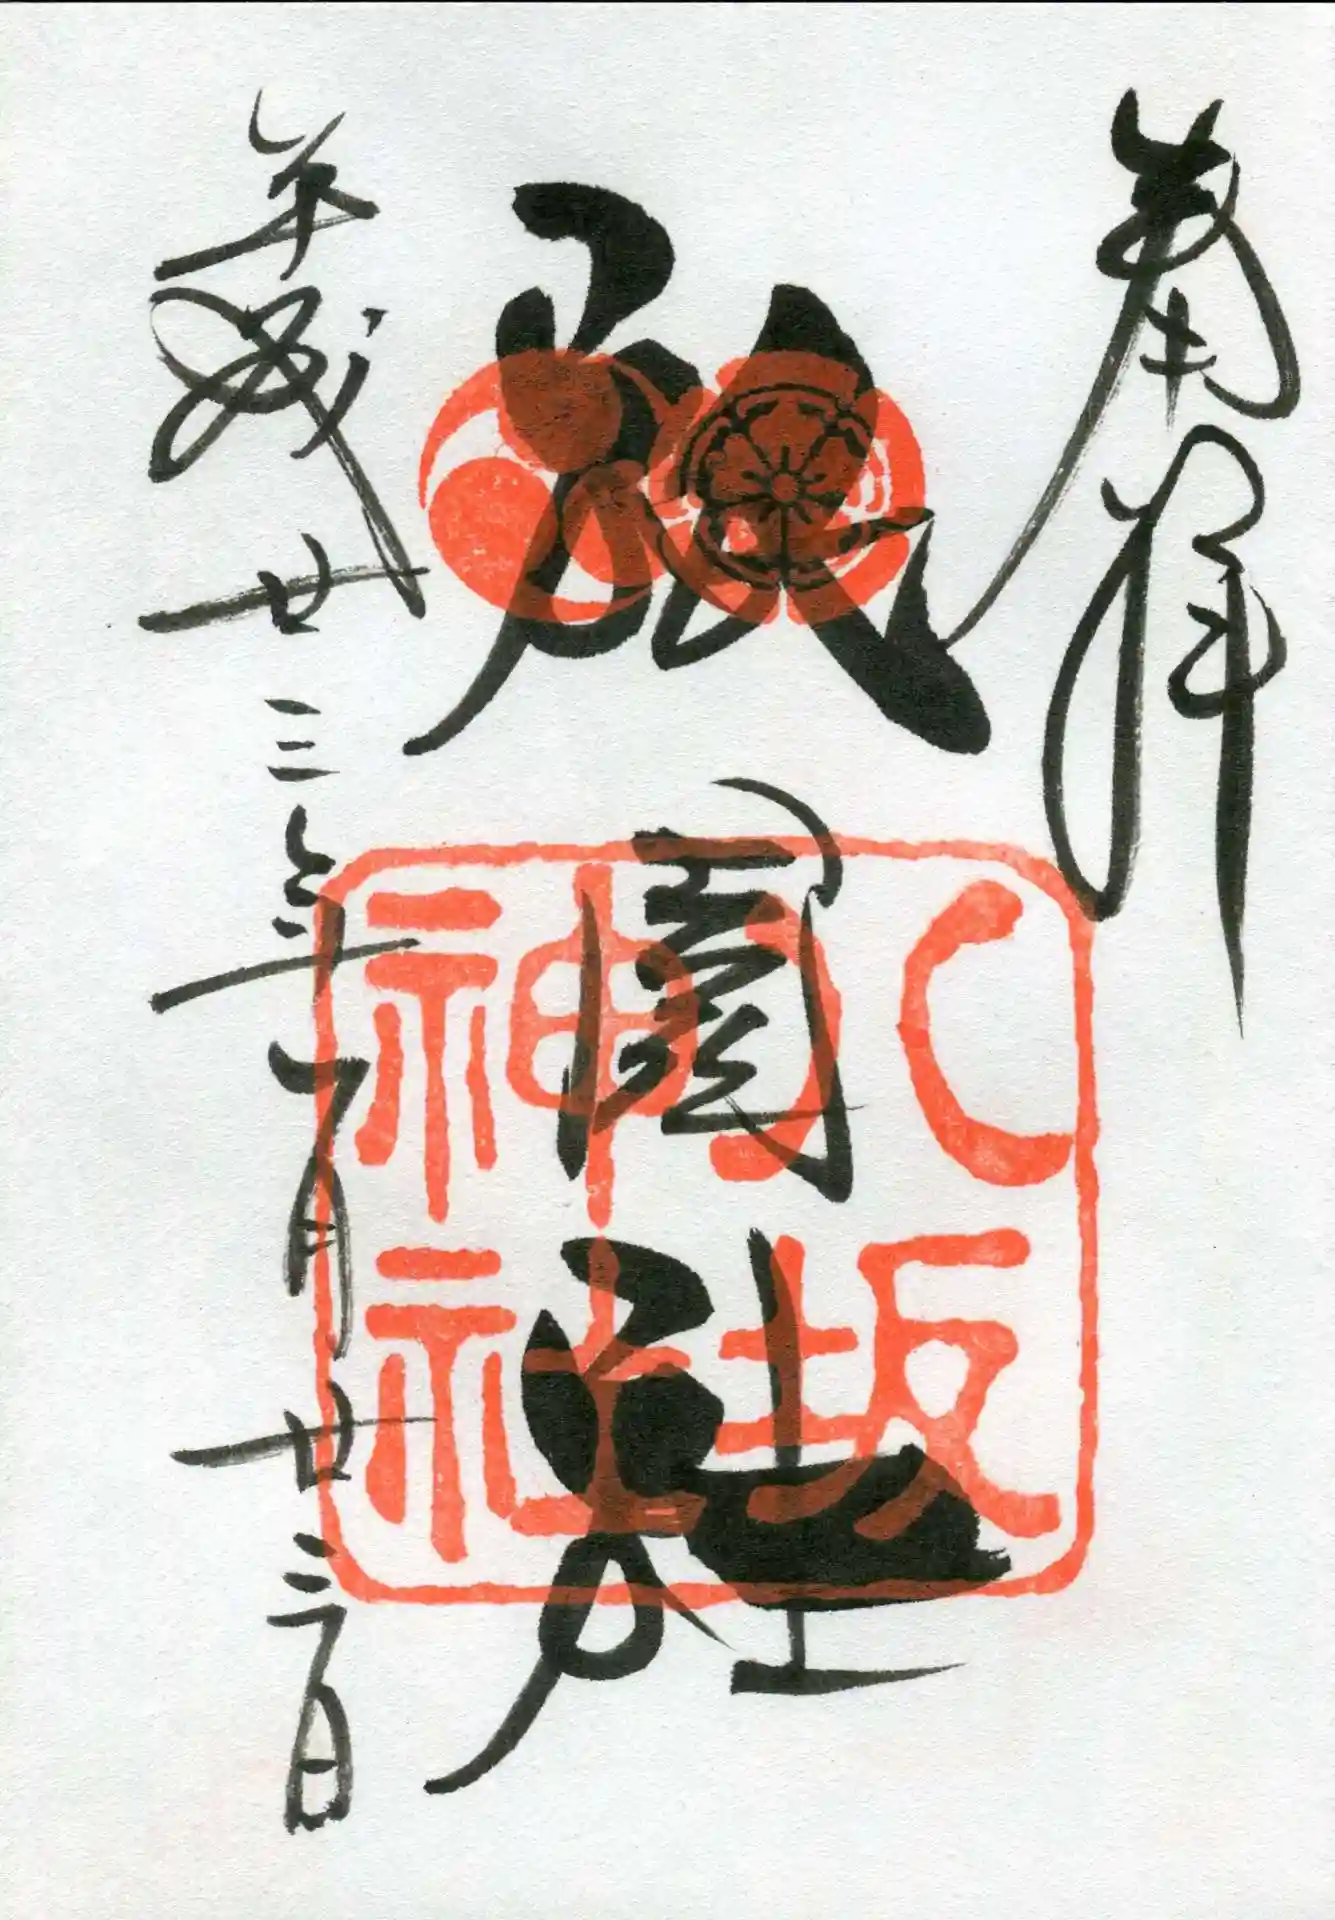 奉拝
祇園社
八坂
神社
平成廿三年 月廿三日